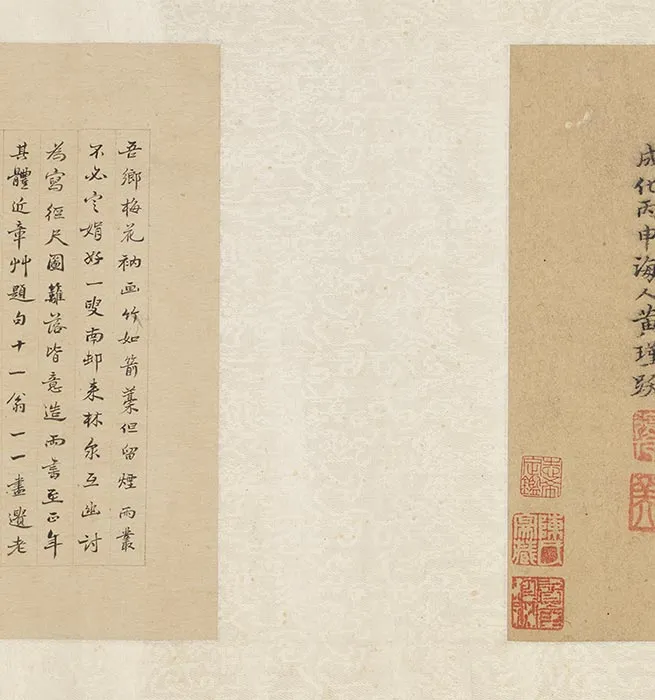 成化丙申海人黃瑾跋
吾鄉梅花衲画竹如箭藁但留煙雨叢
不必定娟好一叟南邨来林泉互幽討
為寫徑尺圖籬落皆意造兩書至正年
其體近章艸題句十一翁一一盡遺老